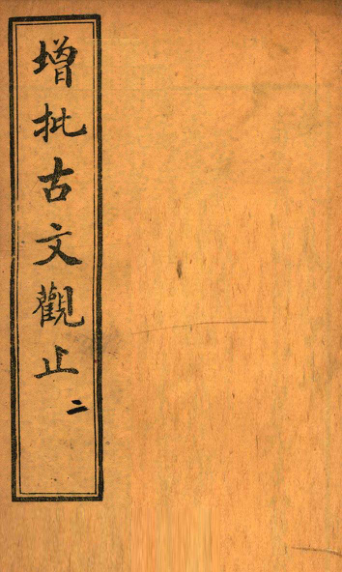 增批古文觀止
二